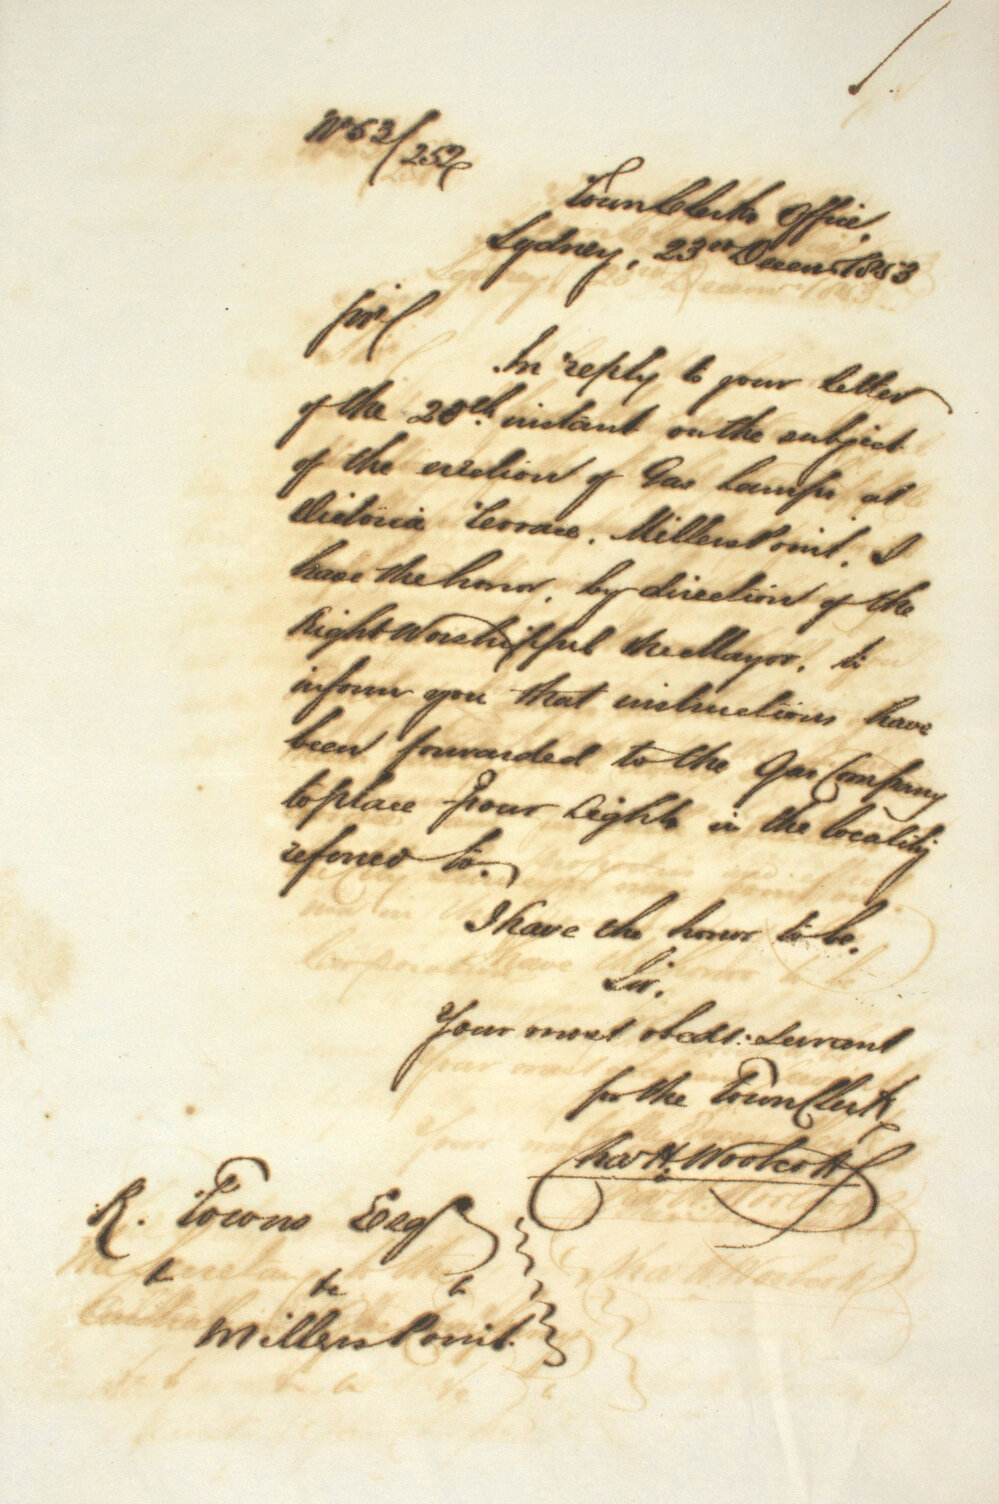 No 53/252
Town Clerks Office,
Sydney, 23rd Decemr 1853
Sir
In reply to your letter
of the 20th instant on the subject
of the erection of Gas Lamps at
Victoria Terrace, Millers Point, I
have the honor, by direction of the
Right Worshipful the Mayor, to
inform you that instructions have
been forwarded to the Gas Company
to place four Lights in the locality
referred to.
I have the honor to be,
Sir,
Your most obedt: Servant
for the Town Clerk
Chas H. Woolcott
R. Towns Esqr
&c &c &c
Millers Point.